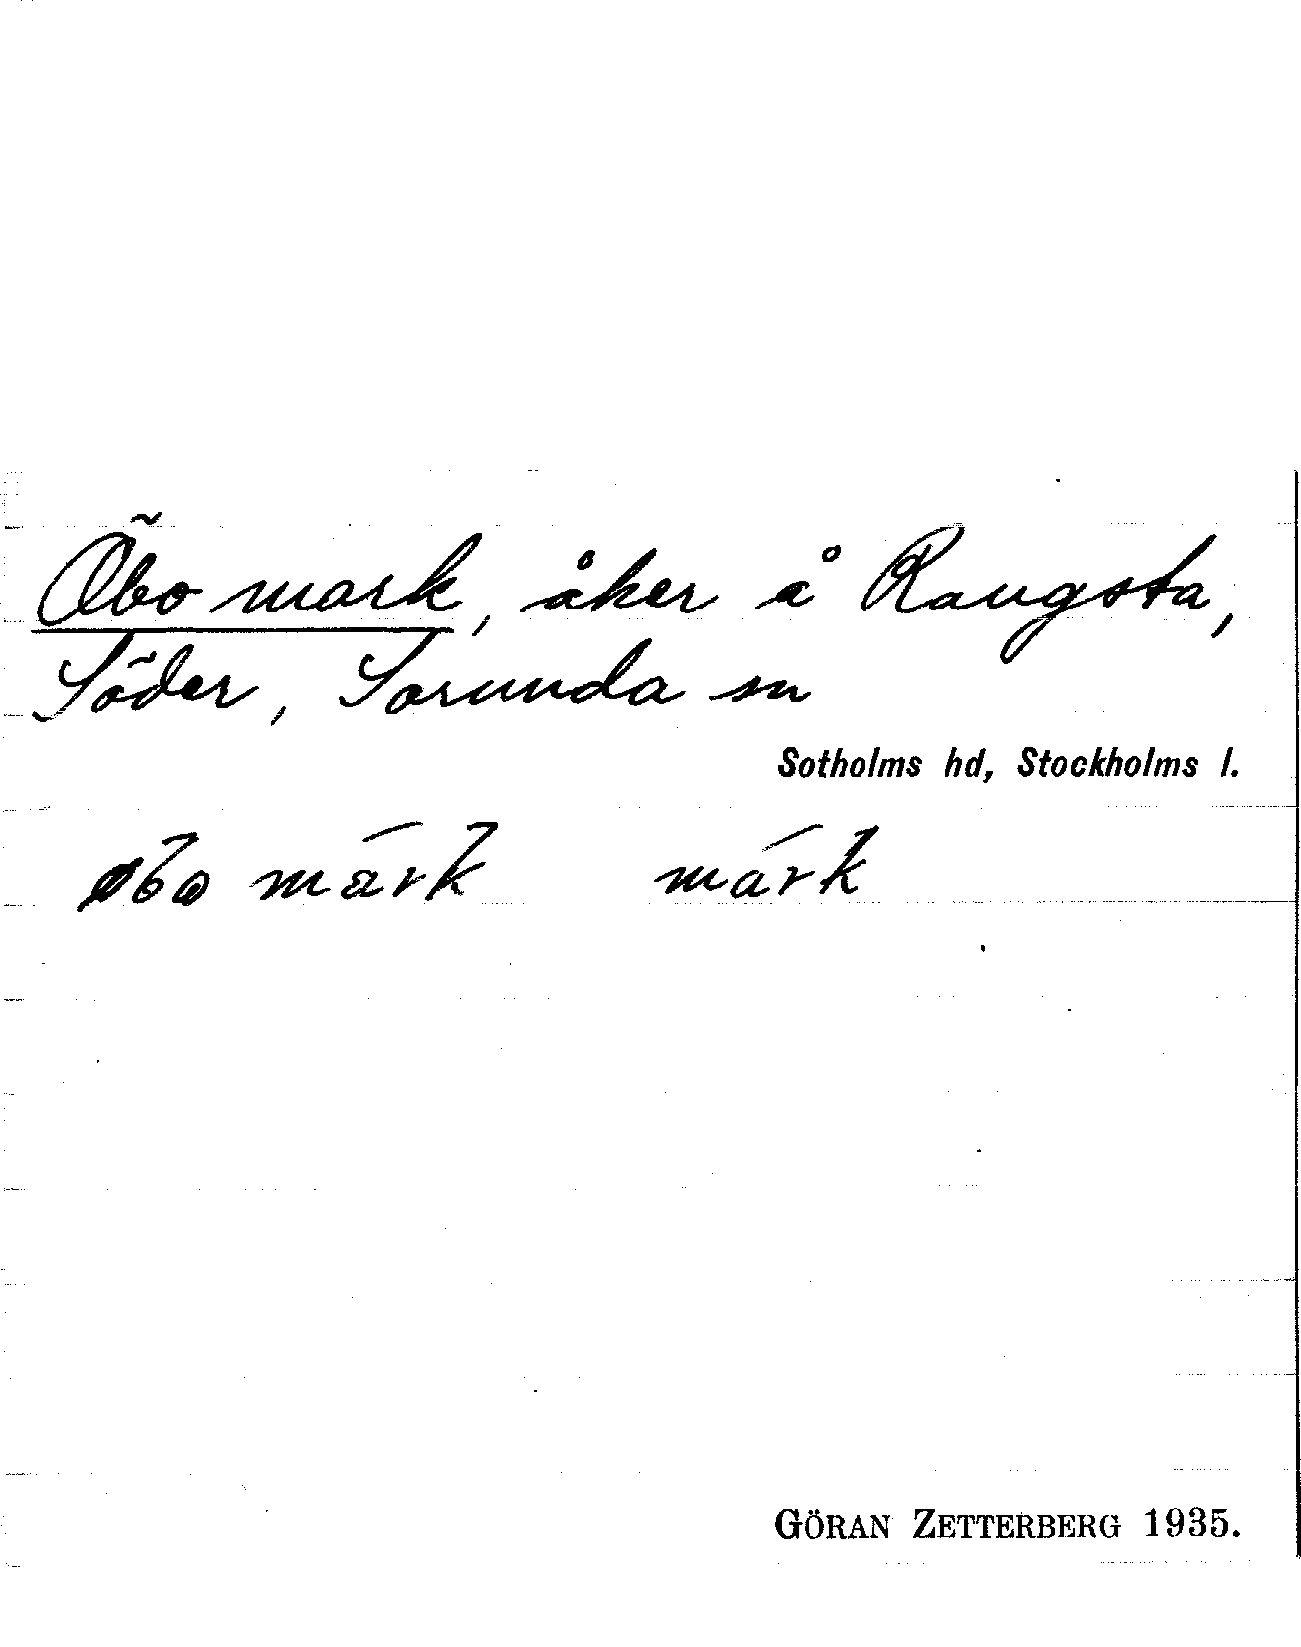 Öbo mark, åker å Rangsta,
Söder, Sorunda sn
Sotholms hd, Stockholms l.
øbo mark mark
GÖRAN ZETTERBERG 1935.